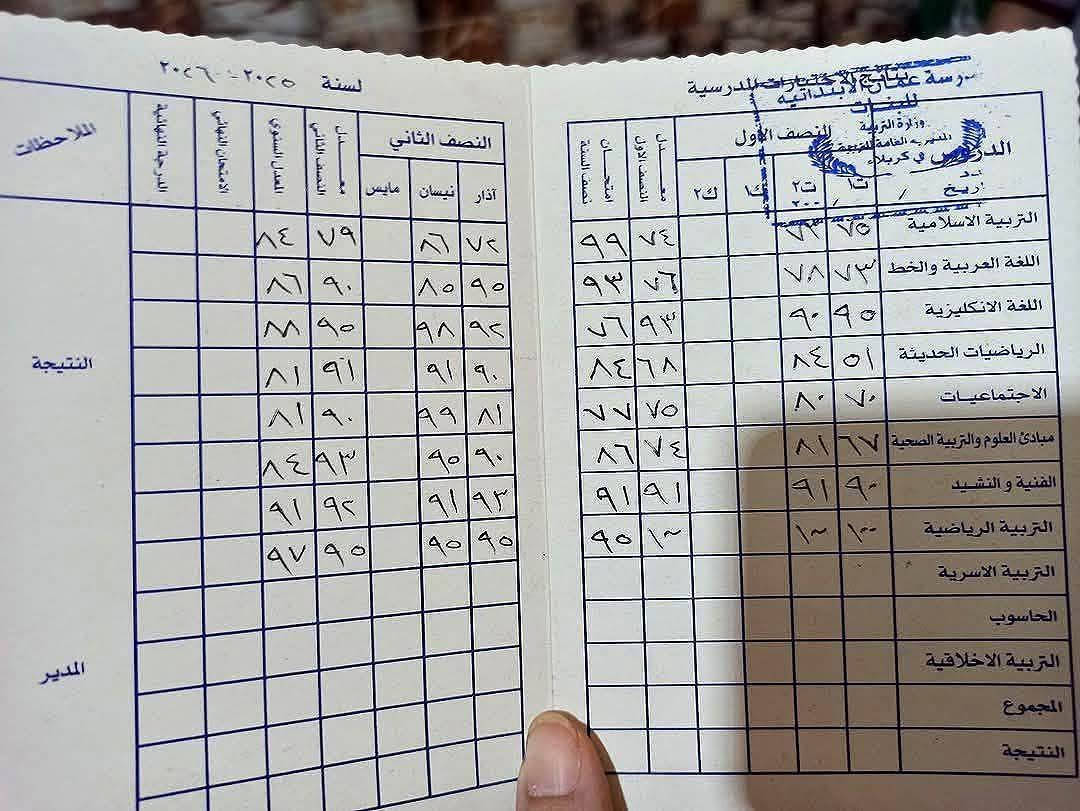 نتايج الاختبارات المدرسية
مدرسة عمان الابتدائية
للبنات
وزارة التربية
المديرية العامة للتربية
في كربلاء
الدروس
النصف الاول
ت١ ت٢ ك١ ك٢
معدل النصف الاول
امتحان نصف السنة
التربية الاسلامية ٧٥ ٧٤ ٩٩
اللغة العربية والخط ٧٣ ٧٨ ٧٦ ٩٣
اللغة الانكليزية ٩٥ ٩٠ ٩٣ ٧٦
الرياضيات الحديثة ٥١ ٨٤ ٦٨ ٨٤
الاجتماعيات ٧٠ ٨٠ ٧٥ ٧٧
مبادئ العلوم والتربية الصحية ٦٧ ٨١ ٧٤ ٨٦
الفنية والنشيد ٩٠ ٩١ ٩١ ٩١
التربية الرياضية ١٠٠ ١٠٠ ١٠٠ ٩٥
التربية الاسرية
الحاسوب
التربية الاخلاقية
المجموع
النتيجة
لسنة ٢٠٢٥ - ٢٠٢٦
النصف الثاني
آذار نيسان مايس
معدل النصف الثاني
المعدل السنوي
الامتحان النهائي
الدرجة النهائية
الملاحظات
٧٢ ٨٦ ٧٩ ٨٤
٩٥ ٨٥ ٩٠ ٨٦
٩٢ ٩٨ ٩٥ ٨٨
٩٠ ٩١ ٩١ ٨١
٨١ ٩٩ ٩٠ ٨١
٩٠ ٩٥ ٩٣ ٨٤
٩٣ ٩١ ٩٢ ٩١
٩٥ ٩٥ ٩٥ ٩٧
النتيجة
المدير